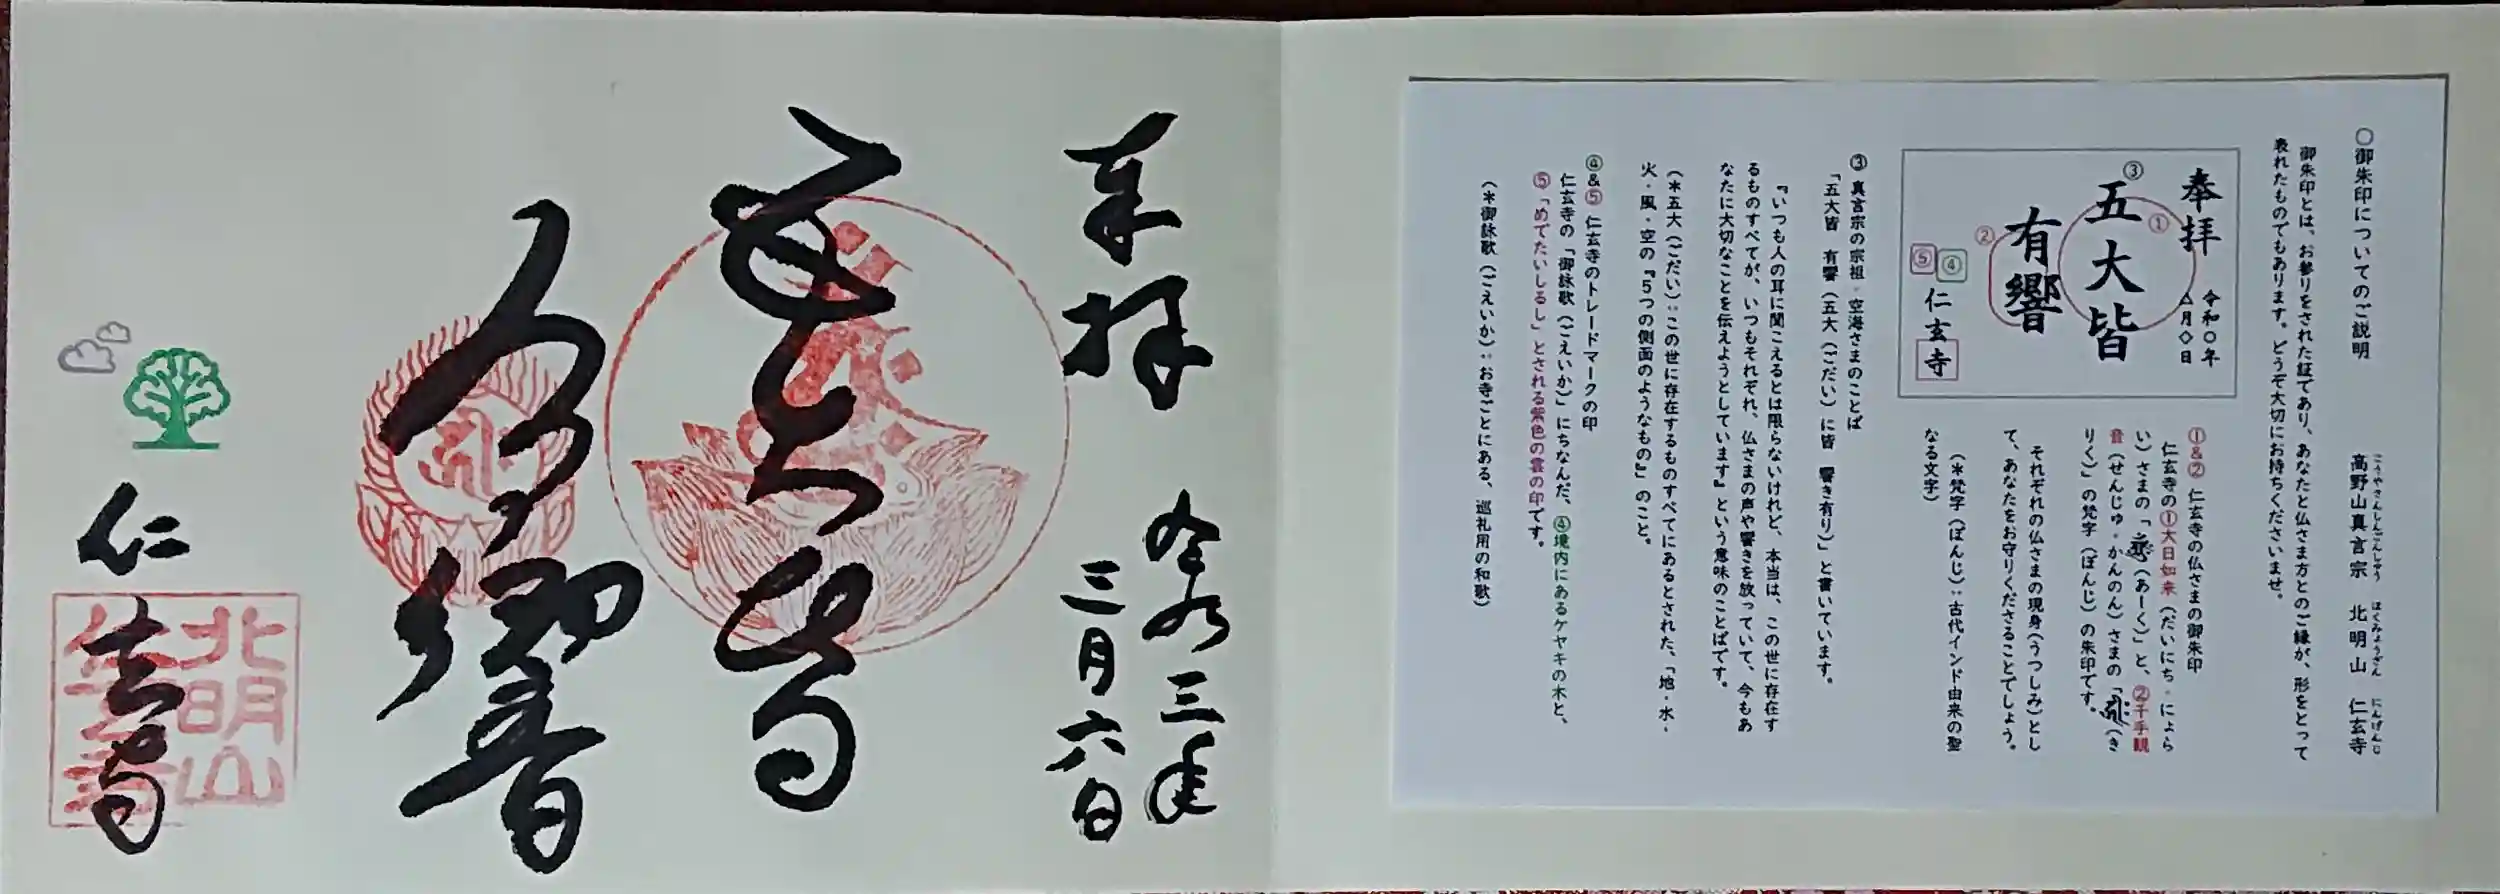 ○御朱印についてのご説明　高野山真言宗　北明山　仁玄寺
こうやさんしんごんしゅう　ほくみょうざん　にんげんじ
御朱印とは、お参りをされた証であり、あなたと仏さま方とのご縁が、形をとって
表れたものでもあります。どうぞ大切にお持ちくださいませ。
奉拝
令和○年
△月◇日
①
③
五大皆
②
有響
④
⑤
仁玄寺
①&② 仁玄寺の仏さまの御朱印
仁玄寺の①大日如来（だいにち・にょら
い）さまの「（あーく）」と、②千手観
音（せんじゅ・かんのん）さまの「（き
りく）」の梵字（ぼんじ）の朱印です。
それぞれの仏さまの現身（うつしみ）とし
て、あなたをお守りくださることでしょう。
（＊梵字（ぼんじ）：古代インド由来の聖
なる文字）
③ 真言宗の宗祖・空海さまのことば
「五大皆　有響（五大（ごだい）に皆　響き有り）」と書いています。
『いつも人の耳に聞こえるとは限らないけれど、本当は、この世に存在す
るものすべてが、いつもそれぞれ、仏さまの声や響きを放っていて、今もあ
なたに大切なことを伝えようとしています』という意味のことばです。
（＊五大（ごだい）：この世に存在するものすべてにあるとされた、「地・水・
火・風・空の『５つの側面のようなもの』のこと。
④&⑤ 仁玄寺のトレードマークの印
仁玄寺の「御詠歌（ごえいか）」にちなんだ、④境内にあるケヤキの木と、
⑤「めでたいしるし」とされる紫色の雲の印です。
（＊御詠歌（ごえいか）：お寺ごとにある、巡礼用の和歌）
奉拝
令和三年
三月六日
五大皆
有響
仁玄寺
北明山
仁玄寺